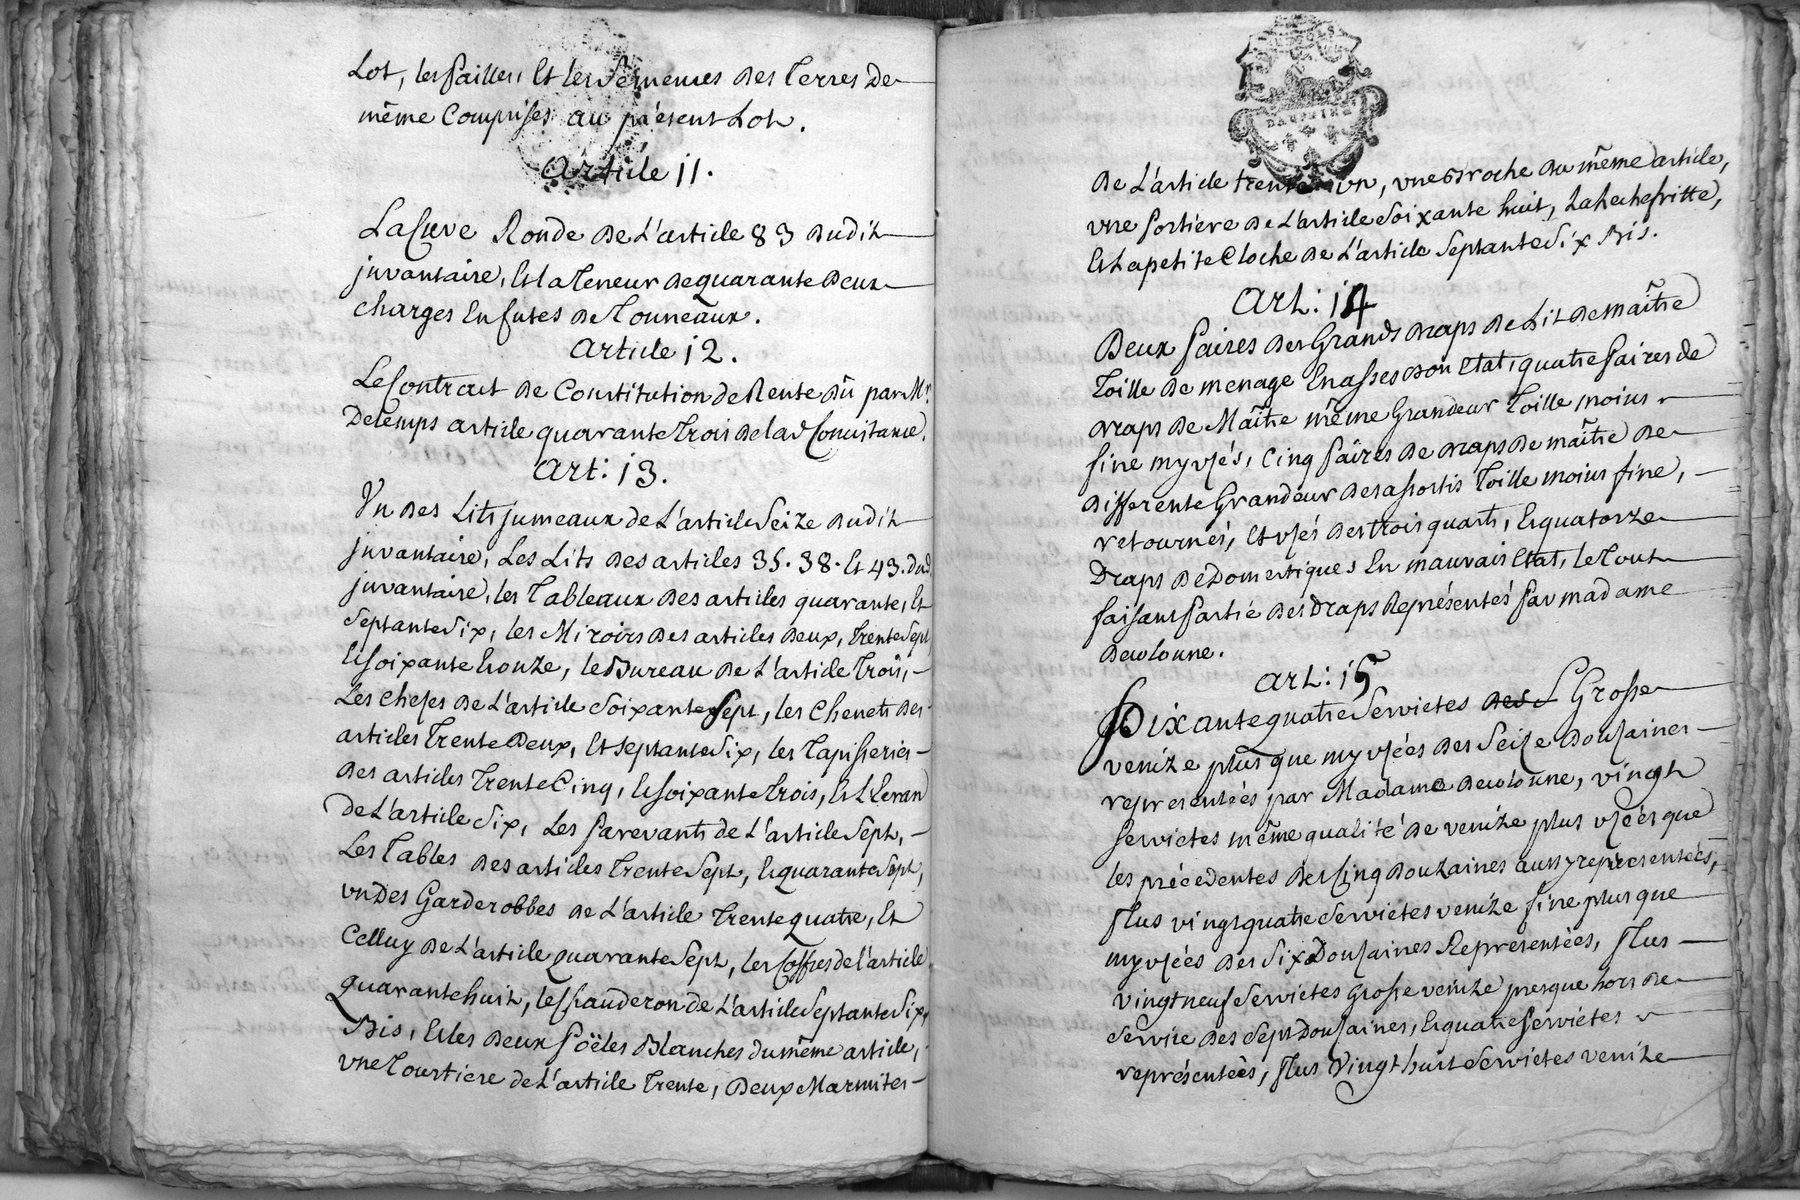 Lot, les pailles, Et les semences des Terres de
même Comprises au présent Lot.
Article 11.
La Cuve Ronde de L'article 83 dudit
juvantaire, Et la Teneur de quarante deux
charges En futes de Tonneaux.
Article 12.
Le Contract de Constitution de Rente dû par Mr.
Delemps article quarante Trois de lad
Art: 13.
Un des Lits jumeaux de L'article Seize dudit
juvantaire, Les Lits des articles 35. 38. Et 43. dud
juvantaire, les Tableaux des articles quarante, Et
Septante Six, les Miroirs des articles deux, Trente Sept
Et soixante Et onze, le Bureau de L'article Trois,
Les chefes de L'article Soixante Sept, les Chenets des
articles Trente Deux, Et Septante Six, les Tapisseries
des articles Trente Cinq, Et soixante Trois, Et L'Ecran
de L'article Six, Les Parevants de L'article Sept,
Les Tables des articles Trente Sept, Et quarante Sept,
un des Garderobbes de L'article Trente quatre, Et
Celluy de L'article quarante Sept, les Coffres de l'article
quarante huit, le Chauderon de L'article Septante Six
Bis, Et les deux Poëles Blanches du même article,
une Tourtiere de L'article Trente, Deux Marmites
DAUPHINE
de L'article trente un, une Broche du même article,
une Portiere de L'article Soixante huit, La Lechefritte,
Et La petite Cloche de L'article Septante Six Bis.
Art: 14
Deux Paires des Grands draps de Lit de maître
Toille de menage En asses bon Etat, quatre Paires de
draps de Maître même Grandeur Toille moins
fine my usés, Cinq Paires de draps de maître de
differente Grandeur desassortis Toille moins fine,
retournés, Et usés des trois quarts, Et quatorze
Draps de Domestiques En mauvais Etat, le Tout
faisant Partie des Draps Représentés par madame
Art: 15
Soixante quatre Serviettes des Grosse
venize plus que my usées des Seize Douzaines
representées par Madame vingt
Serviettes même qualité de venize plus usées que
les précédentes des Cinq Douzaines aussy representées,
Plus vingt quatre Serviettes venize fine plus que
my usées des Six Douzaines Representées, Plus
vingt neuf Serviettes Grosse venize presque hors de
Service des Sept Douzaines, Et quatre Serviettes
représentées, Plus Vingt huit Serviettes venize